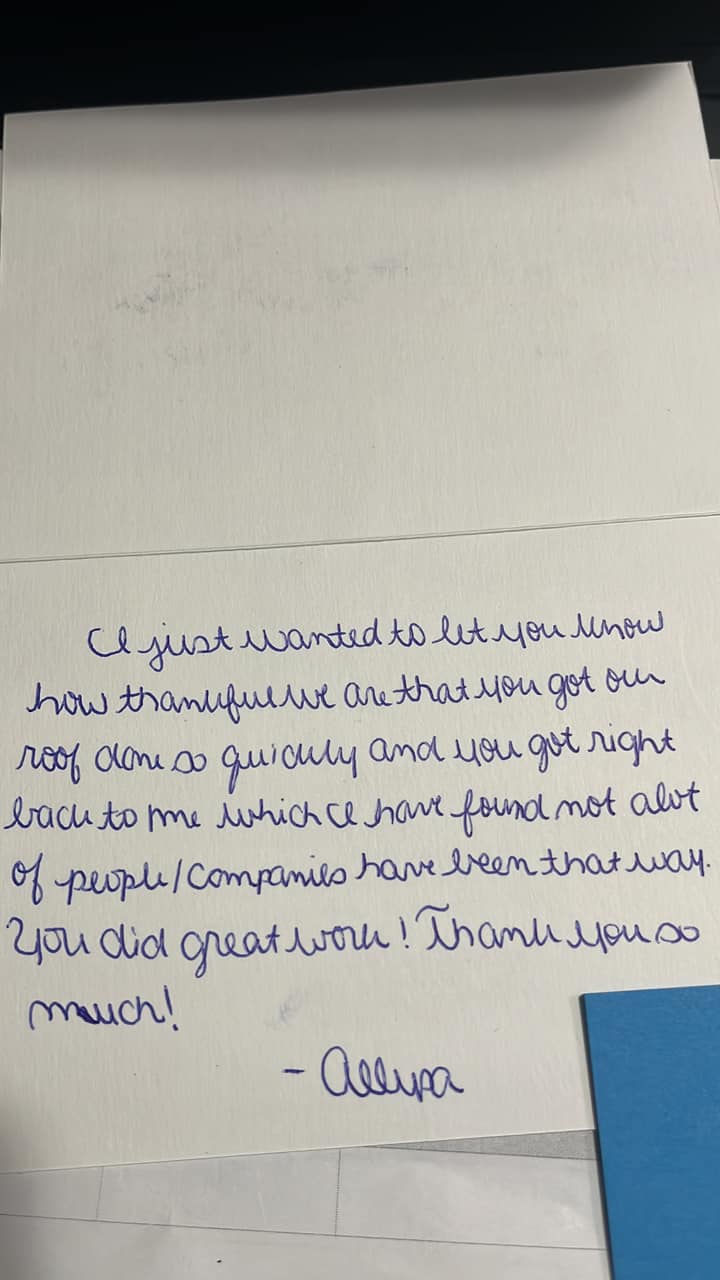 I just wanted to let you know
how thankful we are that you got our
roof done so quickly and you got right
back to me which I have found not alot
of people/companies have been that way.
You did great work! Thank you so
much!